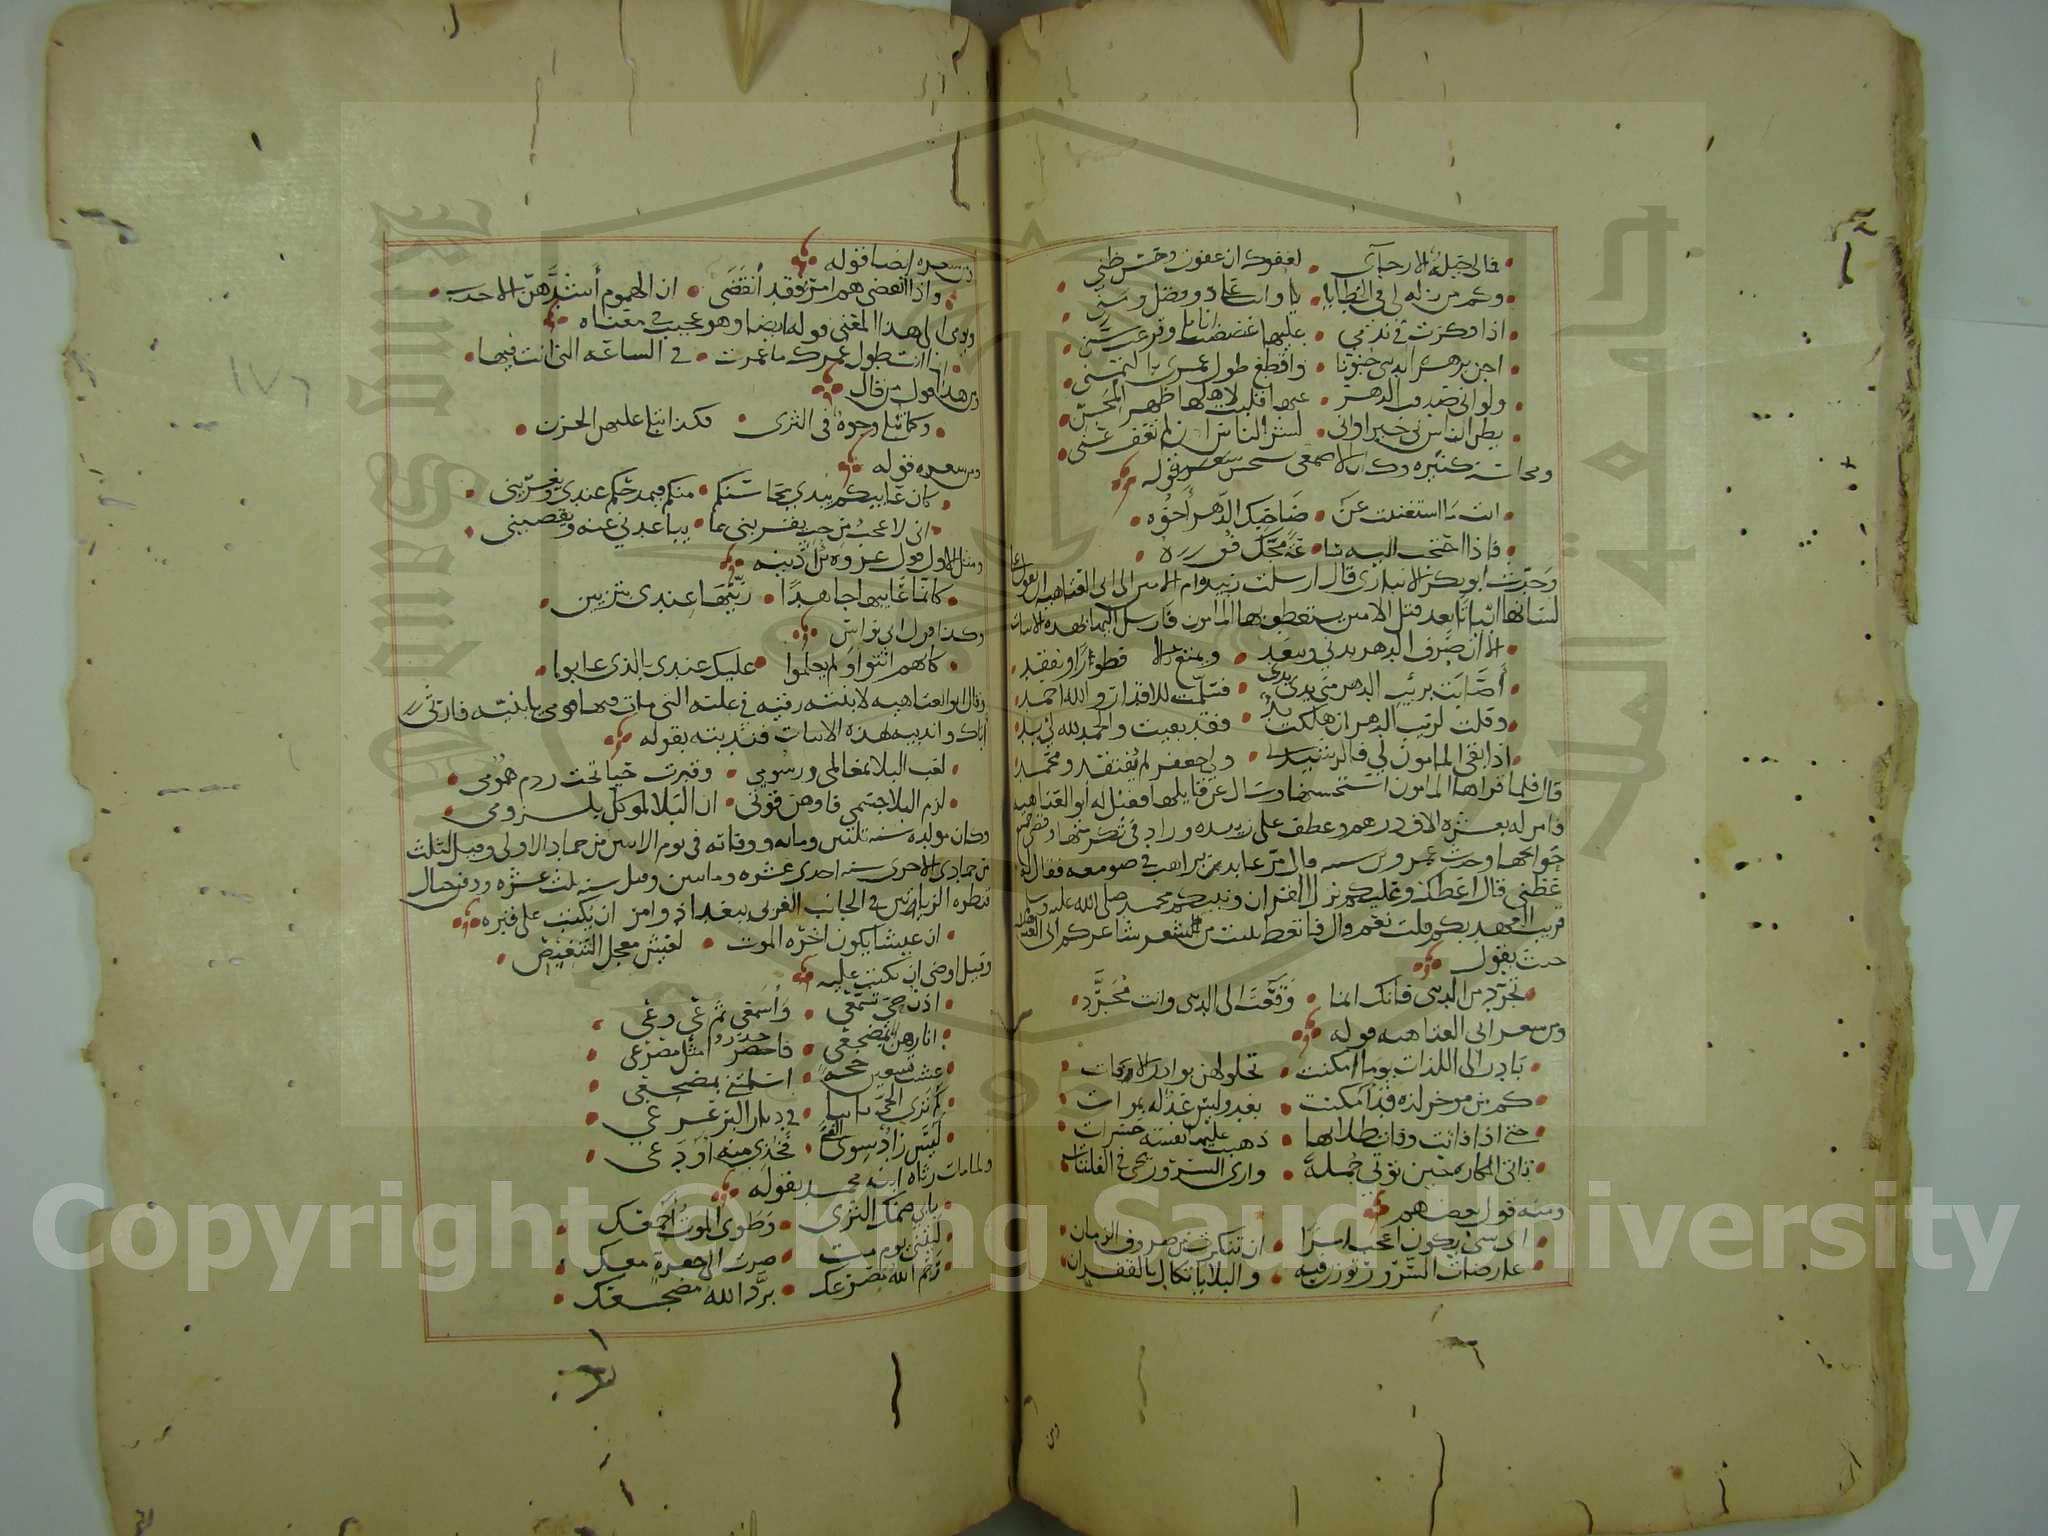 فمالي حيلة الا رجائي لعفوك ان عفوت وحسن ظني
وكم من زلة لي في الخطايا وانت علي ذو فضل ومن
اذا فكرت في ندمي عليها عضضت اناملي وقرعت سني
اجن بزهرة الدنيا جنونا واقطع طول عمري بالتمني
ولو اني صدقت الزهد عنها قلبت لاهلها ظهر المجن
يظن الناس بي خيرا واني لشر الناس ان لم تعف عني
ومحاسنه كثيرة وكان الاصمعي يستحسن شعره قوله
انت ما استغنيت عن صاحبك الدهر اخوه
فاذا احتجت اليه ساعة مجك فوه
وحدث ابو بكر الانباري قال ارسلت زبيدة ام الامين الى ابي العتاهية ان يقول على
لسانها ابياتا بعد قتل الامين يستعطف بها المامون فارسل اليها هذه الابيات
الا ان صرف الدهر يدني ويبعد ويمتع بالالاف طورا ويفقد
أصابت بريب الدهر مني يدي يدي فسلمت للاقدار والله احمد
وقلت لريب الدهر ان هلكت يد فقد بقيت والحمد لله لي يد
اذا بقي المامون لي فالرشيد لي ولي جعفر لم يفتقد ومحمد
قال فلما قراها المامون استحسنها وسال عن قايلها فقيل له ابو العتاهية
فامر له بعشرة الاف درهم وعطف على زبيدة وزاد في تكرمتها وقضى جميع
حوايجها وحدث عمرو قال مر عابد براهب في صومعة فقال له
عظني قال اعظك وعليكم نزل القران ونبيكم محمد صلى الله عليه وسلم
قريب العهد بكم قلت نعم قال فاتعظ ببيت من شعر شاعركم ابي العتاهية
حيث يقول
تجرد من الدنيا فانك انما وقعت الى الدنيا وانت مجرد
ومن شعر ابي العتاهية قوله
بادر الى اللذات يوما امكنت بحلولهن بوادر الافات
كم من موخر لذة قد امكنت لغد وليس غد له بموات
حتى اذا فاتت وفات طلابها ذهبت عليها نفسه حسرات
تاتي المكاره حين تاتي جملة وارى السرور يجي في الفلتات
ومنه قول بعضهم
اي شي يكون اعجب امرا ان تفكرت من صروف الزمان
عارضات السرور توزن فيه والبلايا تكال بالقفزان
ومن شعره ايضا قوله
واذا انقضى هم امرئ فقد انقضى ان الهموم أشدهن الاحدث
ويوى الى هذا المعنى قوله ايضا وهو عجيب في معناه
انما انت طول عمرك ما عمرت في الساعة التي انت فيها
ومن هذا قول من قال
وكما تبلى وجوه في الثرى فكذا يبلى عليهن الحزن
ومن شعره قوله
كان عايبكم يبدي محاسنكم منكم فيمدحكم عندي ويغريني
اني لاعجب من حب يقربني مما يباعدني عنه ويقصيني
ومثل الاول قول عروة بن اذينة
كانما عايبها جاهدا زينها عندي بتزيين
وكذا قول ابي نواس
كانهم اثنوا ولم يعلموا عليك عندي بالذي عابوا
وقال ابو العتاهية لابنته رقية في علته التي مات فيها قومي يا بنية فارثي
اباك واندبيه بهذه الابيات فندبته بقوله
لعب البلا بمعالمي ورسومي وقبرت حيا تحت ردم همومي
لزم البلا جسمي فاوهن قوتي ان البلا لموكل بلزومي
وكان مولده سنة ثلثين ومايه ووفاته في يوم الاثنين من جمادي الاولى وقيل لثلث
من جمادي الاخرى سنة احدى عشره ومايتين وقيل سنة ثلث عشره ودفن حيال
قنطرة الزياتين في الجانب الغربي ببغداد وامر ان يكتب على قبره
ان عيشا يكون اخره الموت لعيش معجل التنغيص
وقيل اوصى ان يكتب عليه
اذن حي تسمعي واسمعي ثم عي وعي
انا رهن بمضجعي فاحذري مثل مصرعي
عشت تسعين حجة اسلمتني لمضجعي
كم ترى الحي ثابتا في ديار التزعزعي
ليس زاد سوى التقى فخذي منه او دعي
ولما مات رثاه ابنه محمد بقوله
يا ابي ضمك الثرى وطوى الموت اجمعك
ليتني يوم مت صرت الى حفرة معك
رحم الله مصرعك برد الله مضجعك
١٧٦
ومن
Copyright © King Saud University
King Saud University
1957